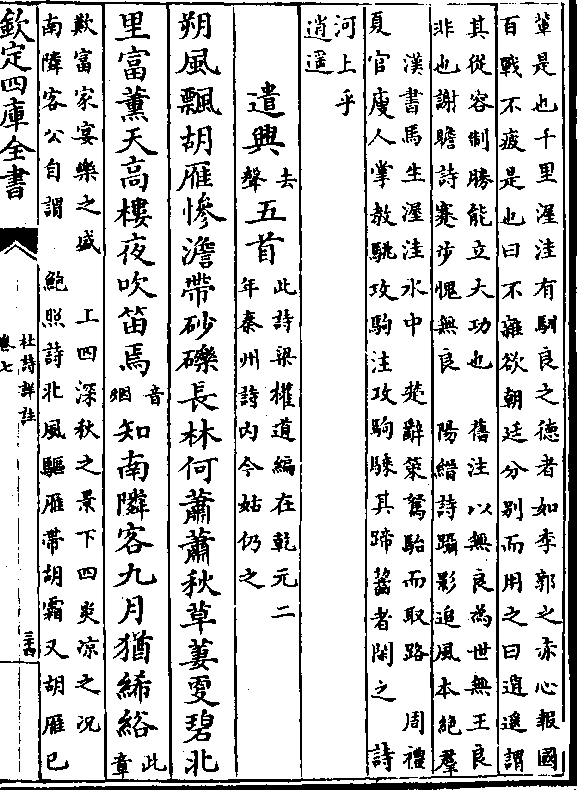 輩是也千里渥洼有馴良之德者如李郭之赤心報國
百戰不疲是也曰不雜欲朝廷分別而用之曰逍遥謂
其從容制勝能立大功也　舊注以無良為世無王良
非也謝瞻詩蹇步愧無良　陽縉詩躡影追風本絕羣
漢書馬生渥洼水中　楚辭策駑駘而取路　周禮
夏官廋人掌教駣攻駒注攻駒騬其蹄齧者閑之　詩
河上乎
逍遥
遣興去聲五首此詩梁權道編在乾元二
年秦州詩内今姑仍之
朔風飄胡雁慘澹帶砂礫長林何蕭蕭秋草萋更碧北
里富薰天高樓夜吹笛焉音烟知南隣客九月猶絺綌此章
歎富家宴樂之盛　上四深秋之景下四炎凉之況
南隣客公自謂　鮑照詩北風驅雁帶胡霜又胡雁已
欽定四庫全書
杜詩詳註
卷七
二十四